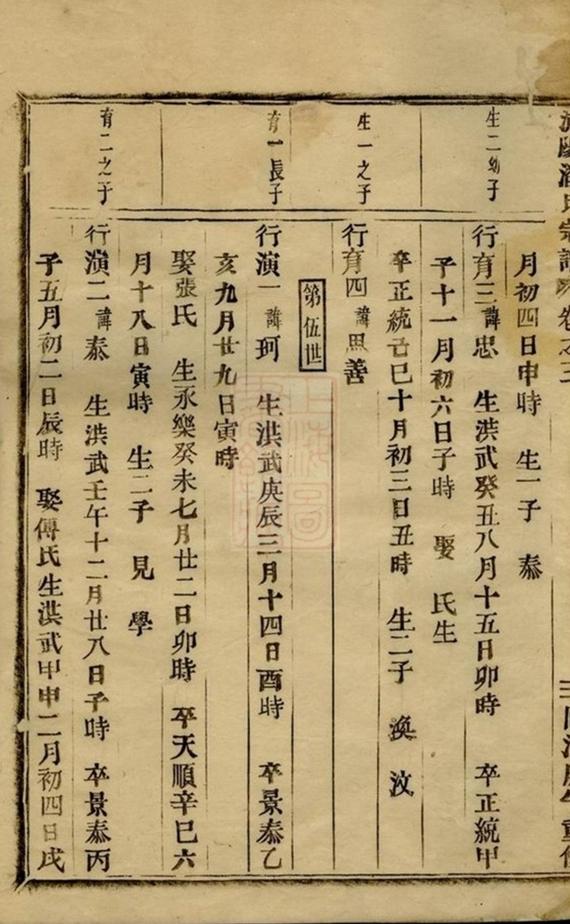 月初四日申時 生一子 泰
生二幼子
行育三諱忠 生洪武癸丑八月十五日卯時 卒正統甲
子十一月初六日子時 娶 氏生
卒正統己巳十月初三日丑時 生二子 渙 汶
生一之子
行育四諱思善
第伍世
育一長子
行演一諱珂 生洪武庚辰三月十四日酉時 卒景泰乙
亥九月廿九日寅時
娶張氏 生永樂癸未七月廿二日卯時 卒天順辛巳六
月十八日寅時 生二子 見 學
育二之子
行演二諱泰 生洪武壬午十二月廿八日子時 卒景泰丙
子五月初二日辰時 娶傅氏生洪武甲申二月初四日戌